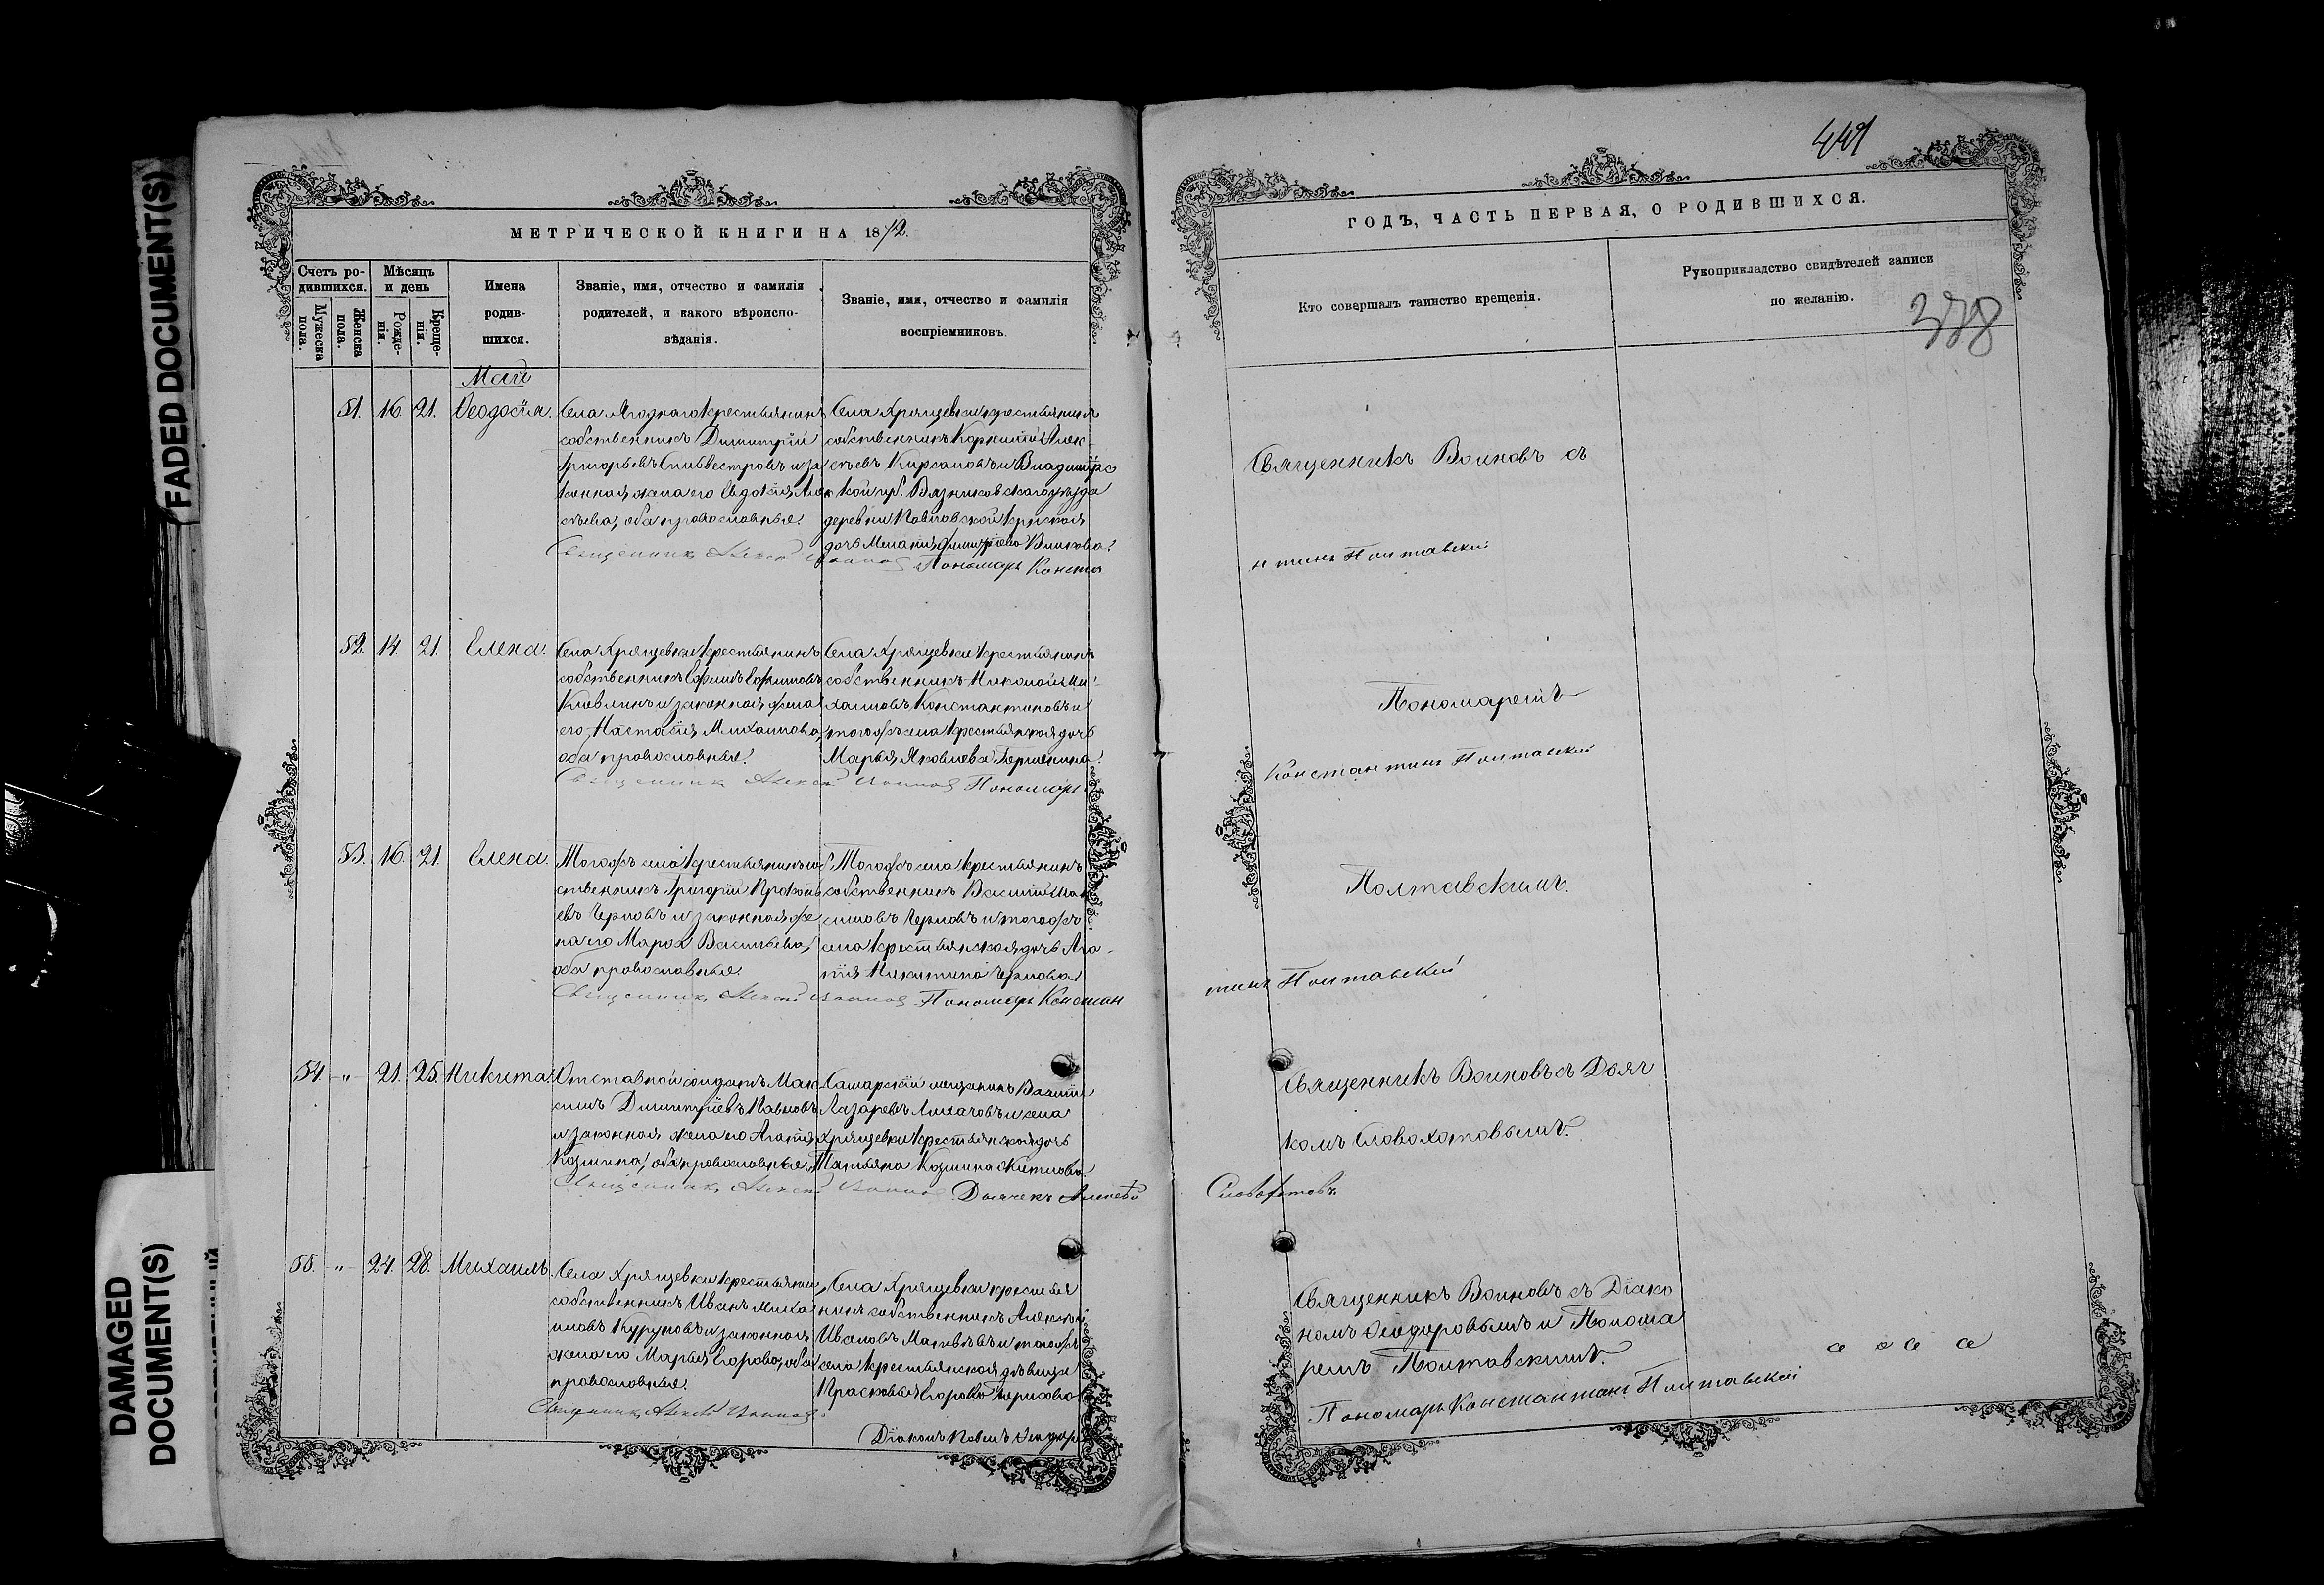 FADED DOCUMENT(S)
DAMAGED
DOCUMENT(S)
МЕТРИЧЕСКОЙ КНИГИ НА 1872.
Счетъ ро-
дившихся.
Мужеска
пола.
Женска
пола.
Мѣсяцъ
и день
Рожде-
нія.
Креще-
нія.
Имена
родив-
шихся.
Званіе, имя, отчество и фамилія
родителей, и какого вѣроиспо-
вѣданія.
Званіе, имя, отчество и фамилія
воспріемниковъ.
Май
51. 16. 21. Ѳеодосія.
Села Ягоднаго крестьянинъ
собственникъ Димитрій
Григорьевъ Сильвестровъ и за
конная жена его Евдокія Алек
сѣева, оба православные.
Села Хрящевки крестьянинъ
собственникъ Корнилій Алек-
сѣевъ Кирсановъ и Владимірс
кой губ. Вязниковскаго уѣзда
деревни Павловской крестьян
дочь Меланія Димитріева
Священникъ Алексей Воиновъ Пономарь Конста
52. 14. 21. Елена.
Села Хрящевки крестьянинъ
собственникъ Ефимъ Ефимовъ
и законная жена
его Настасія Михаилова,
оба православные.
Села Хрящевки крестьянинъ
собственникъ Николай Ми-
хаиловъ Константиновъ и
тогожъ села крестьянская дочь
Марья Яковлева
Священникъ Алексей Воиновъ Пономарь
53. 16. 21. Елена.
Тогожъ села крестьянинъ соб
ственникъ Григорій Прокопь
евъ Черновъ и законная же
на его Марѳа Васильева,
оба православные.
Тогожъ села крестьянинъ
собственникъ Василій Мак
симовъ Черновъ и тогожъ
села крестьянская дочь Ага-
пія Никитина Чернова
Священникъ Алексей Воиновъ Пономарь Констан
54. -"- 21. 25. Никита.
Отставной солдатъ Мак
симъ Димитріевъ Павловъ
и законная жена его Агапія
Козмина, оба православные.
Самарскій мещанинъ Василій
Лазаревъ Лихачовъ и села
Хрящевки крестьянская дочь
Татьяна Козмина
Священникъ Алексей Воиновъ Дьячекъ Алексей
55. -"- 24. 28. Михаилъ.
Села Хрящевки крестьянин
собственникъ Иванъ Миха
иловъ и законная
жена его Марья Егорова, оба
православные.
Села Хрящевки крестья
нинъ собственникъ Алексей
Ивановъ Матвѣевъ и тогожъ
села крестьянская дѣвица
Прасковья Егорова Чернова
Священникъ Алексей Воиновъ
Діаконъ Павелъ Ѳеодор
441
ГОДЪ, ЧАСТЬ ПЕРВАЯ, О РОДИВШИХСЯ.
Кто совершалъ таинство крещенія.
Рукоприкладство свидѣтелей записи
по желанію.
338
Священникъ Воиновъ съ
нтинъ Полтавскій
Пономаремъ
Константинъ Полтавскій
Полтавскимъ.
тинъ Полтавскій
Священникъ Воиновъ съ Дьяч
комъ Словохотовымъ.
Словохотовъ
Священникъ Воиновъ съ Діако
номъ Ѳеодоровымъ и Понома
ремъ Полтавскимъ.
Пономарь Константинъ Полтавскій